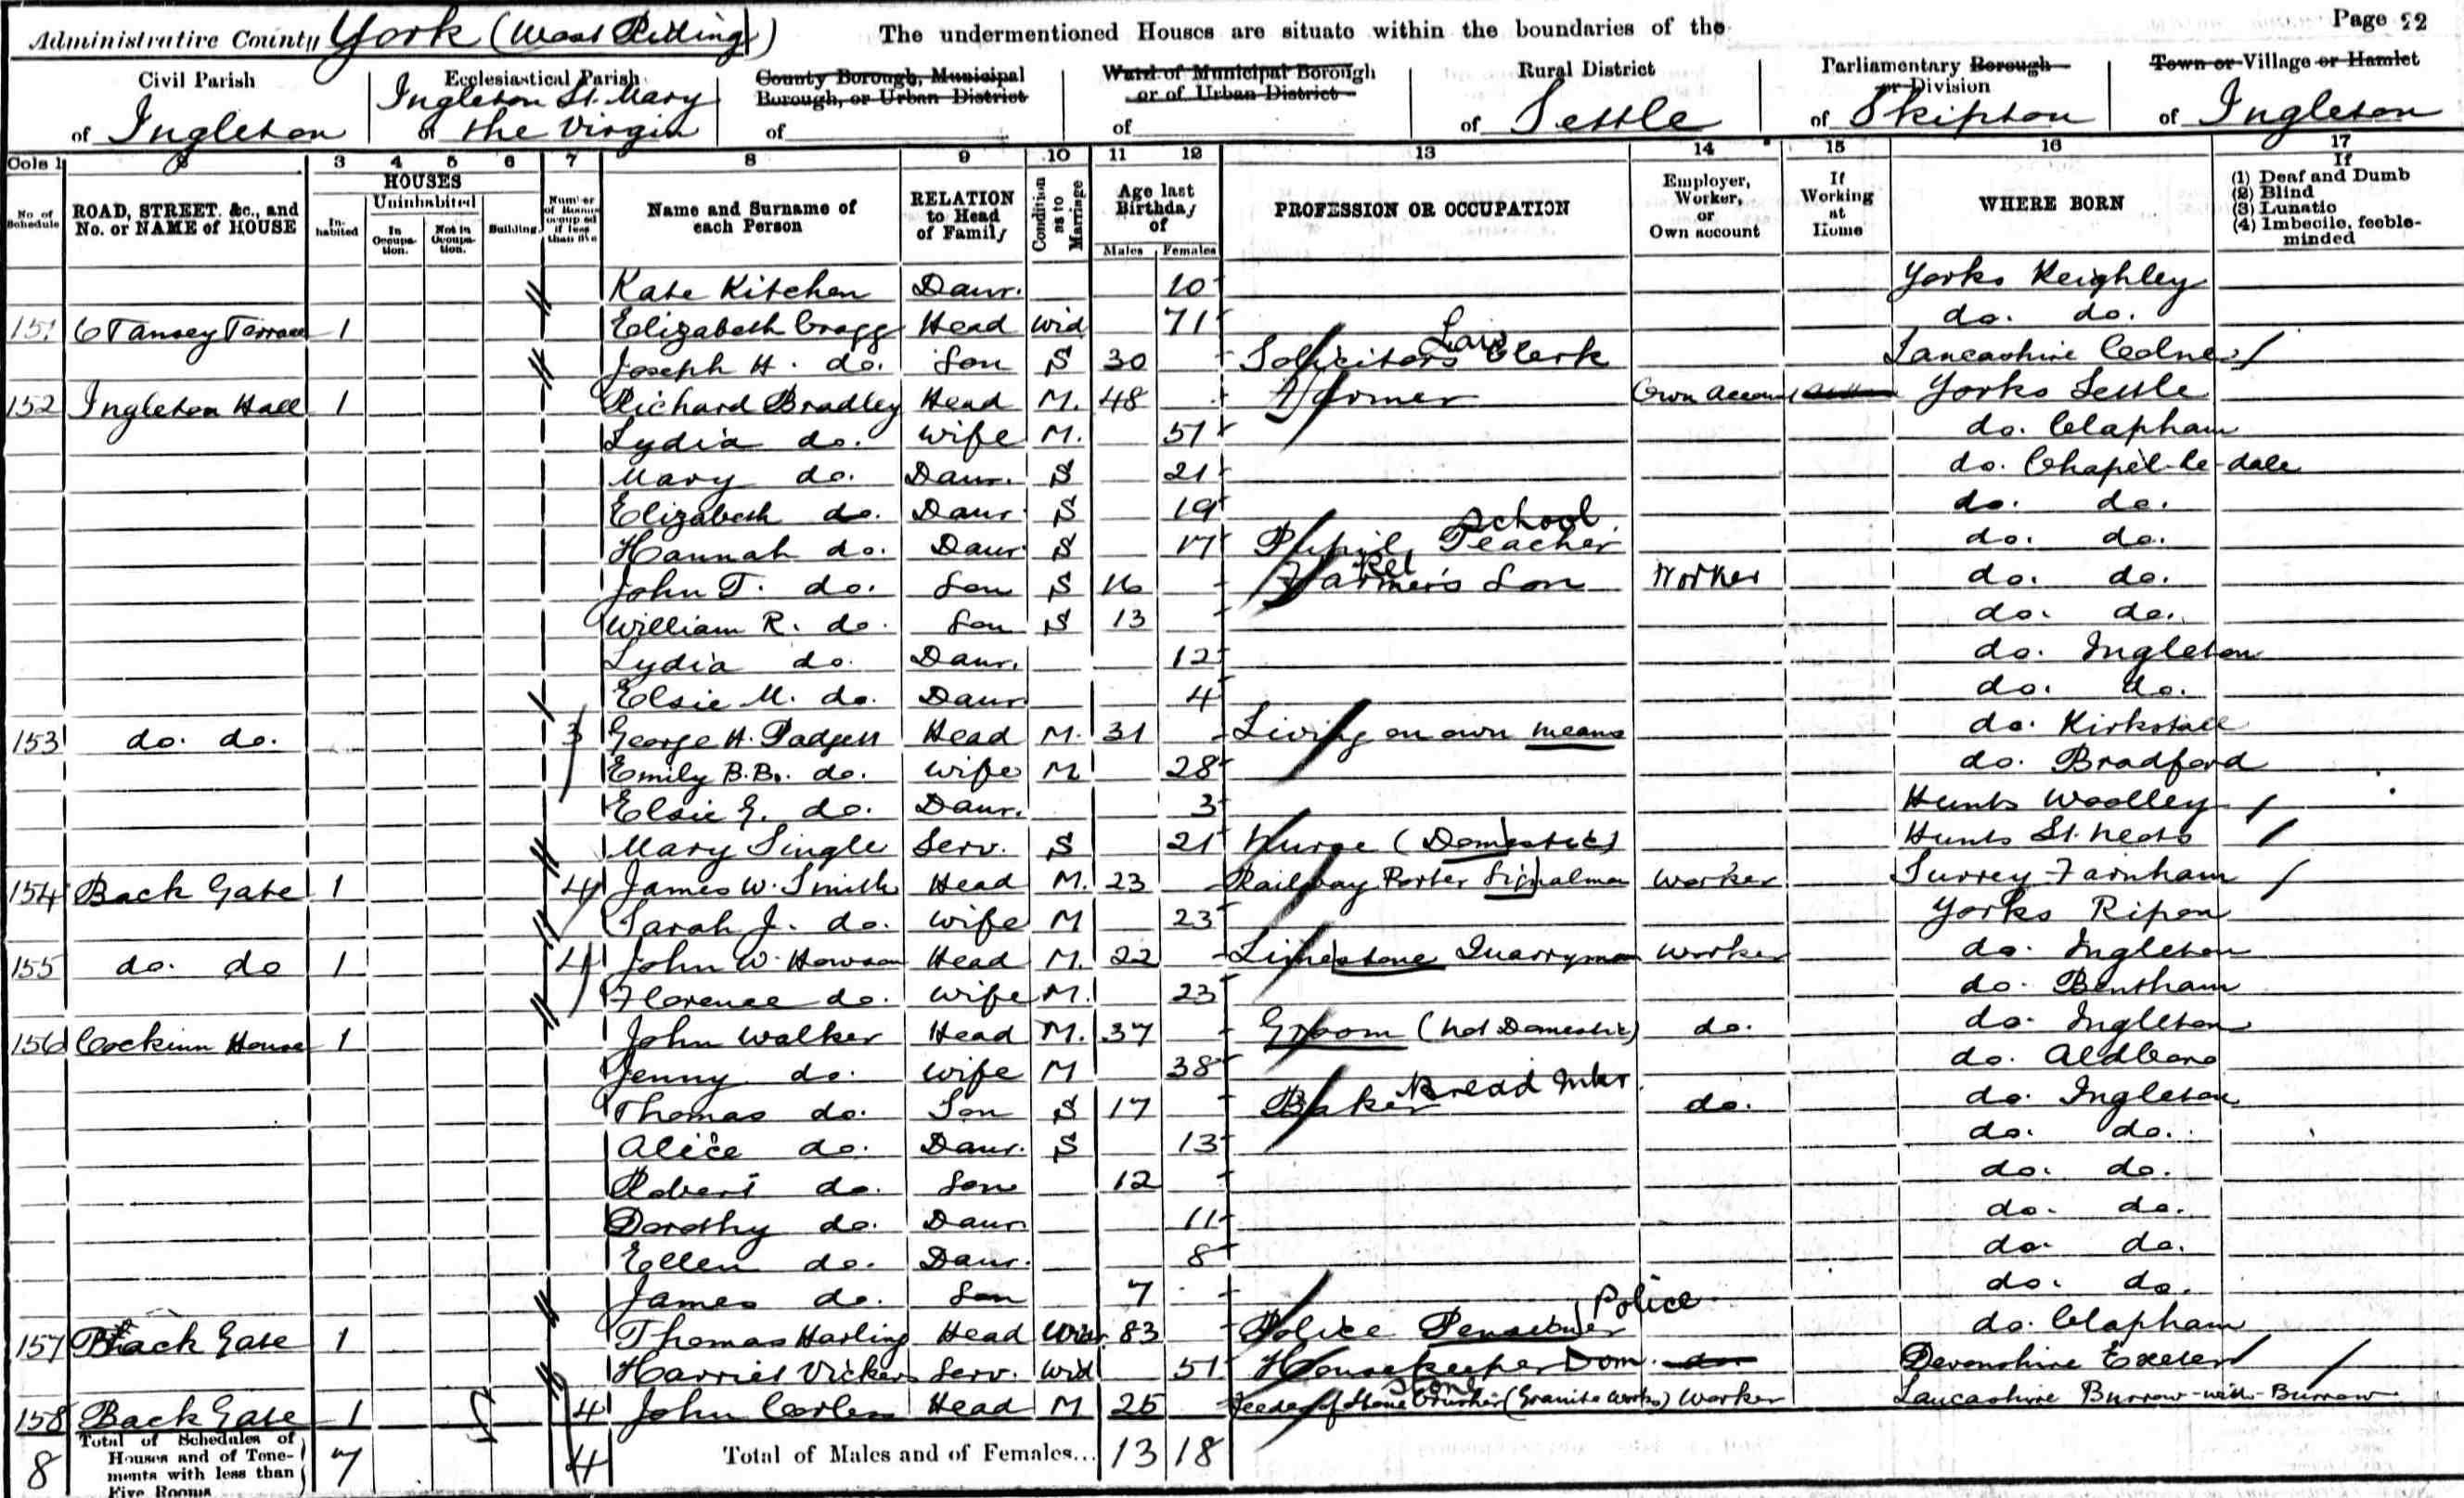 Administrative County York (West Riding) The undermentioned Houses are situate within the boundaries of the Page 22
Civil Parish of Ingleton
Ecclesiastical Parish of Ingleton St. Mary the Virgin
County Borough, Municipal Borough, or Urban District of
Ward of Municipal Borough or of Urban District of
Rural District of Settle
Parliamentary Borough or Division of Skipton
Town or Village or Hamlet of Ingleton
Cols 1 2 3 4 5 6 7 8 9 10 11 12 13 14 15 16 17
No. of Schedule
ROAD, STREET, &c., and No. or NAME of HOUSE
HOUSES
Inhabited
Uninhabited
In Occupation.
Not in Occupation.
Building
Number of Rooms occupied if less than five
Name and Surname of each Person
RELATION to Head of Family
Condition as to Marriage
Age last Birthday of
Males Females
PROFESSION OR OCCUPATION
Employer, Worker, or Own account
If Working at Home
WHERE BORN
If
(1) Deaf and Dumb
(2) Blind
(3) Lunatic
(4) Imbecile, feeble-minded
Kate Kitchen Daur. 10 Yorks Keighley
151 6 Tansey Terrace 1 Elizabeth Cragg Head Wid 71 do. do.
Joseph H. do. Son S 30 Solicitors Law Clerk Lancashire Colne
152 Ingleton Hall 1 Richard Bradley Head M. 48 Farmer Own account Yorks Settle
Lydia do. Wife M. 51 do. Clapham
Mary do. Daur. S 21 do. Chapel-le-dale
Elizabeth do. Daur S 19 do. do.
Hannah do. Daur S 17 Pupil School Teacher do. do.
John T. do. Son S 16 Farmer's Rel Son Worker do. do.
William R. do. Son S 13 do. do.
Lydia do. Daur. 12 do. Ingleton
Elsie M. do. Daur 4 do. do.
153 do. do. 3 George H. Padgett Head M. 31 Living on own means do. Kirkstall
Emily B.B. do. Wife M 28 do. Bradford
Elsie G. do. Daur. 3 Hunts Woolley
Mary Single Serv. S 21 Nurse (Domestic) Hunts St. Neots
154 Back Gate 1 4 James W. Smith Head M. 23 Railway Porter Signalman Worker Surrey Farnham
Sarah J. do. Wife M 23 Yorks Ripon
155 do. do 1 4 John W. Howson Head M. 22 Limestone Quarryman Worker do. Ingleton
Florence do. Wife M. 23 do. Bentham
156 Cockinn House 1 John Walker Head M. 37 Groom (not Domestic) do. do. Ingleton
Jenny do. Wife M 38 do. Aldboro
Thomas do. Son S 17 Baker Bread Mkr. do. do. Ingleton
Alice do. Daur. S 13 do. do.
Robert do. Son 12 do. do.
Dorothy do. Daur 11 do. do.
Ellen do. Daur. 8 do. do.
James do. Son 7 do. do.
157 Back Gate 1 Thomas Harling Head Widr 83 Police Pensioner Police do. Clapham
Harriet Vickers Serv. Wid 51 Housekeeper Dom. Devonshire Exeter
158 Back Gate 1 4 John Head M 25 Feeder of Stone Stone Crusher (Granite Works) Worker Lancashire Burrow-with-Burrow
8 Total of Schedules of Houses and of Tenements with less than Five Rooms 7 4 Total of Males and of Females... 13 18